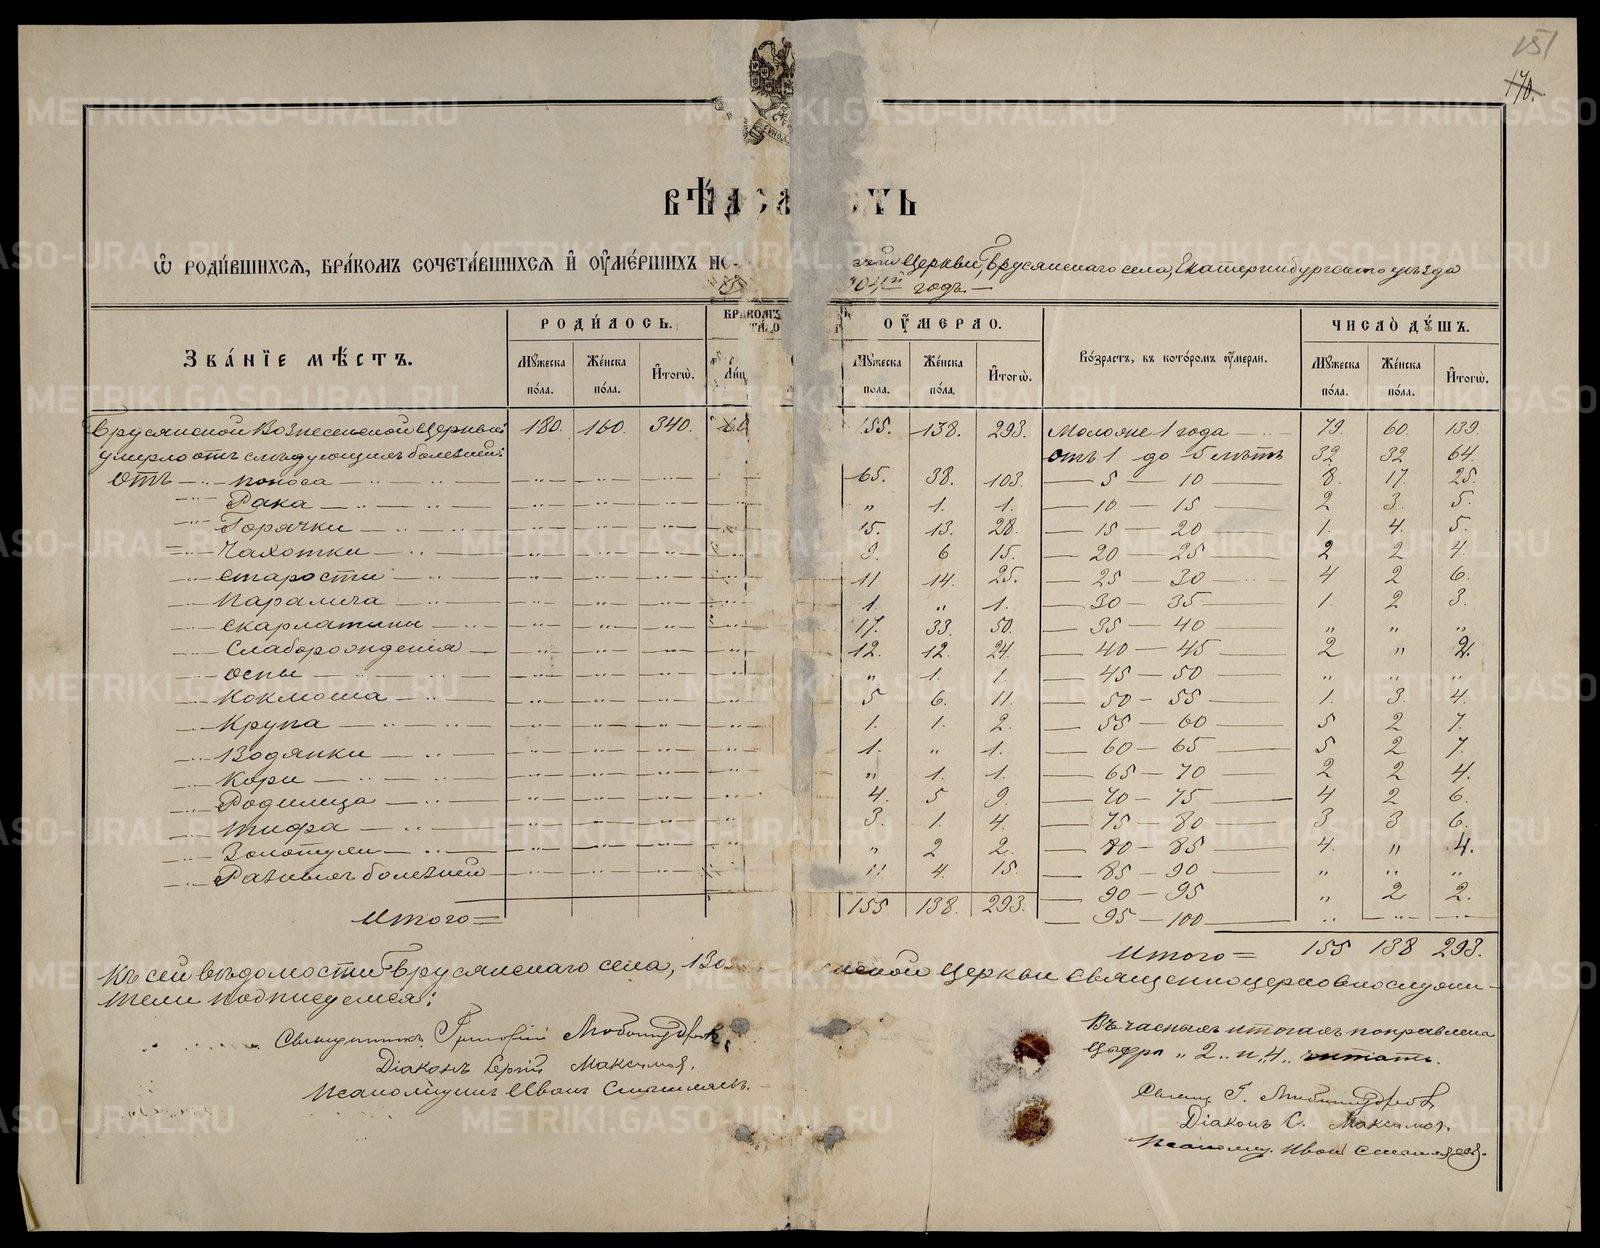 151
170.
ВѢД СТЬ
Ѡ РОДИ́ВШИХСѦ, БРА́КОМЪ СОЧЕТА́ВШИХСѦ И҆ ОУ҆МЕ́РШИХЪ ПО Церкви, Брусянскаго села, Екатеринбургскаго уѣзда
904й годъ
ЗВА́НЇЕ МѢ́СТЪ. РОДИ́ЛОСЬ. БРАКОМЪ ОУ҆МЕРЛО. Во́зрастъ, въ кото́ромъ оу҆мерли. ЧИСЛО̀ ДУ́ШЪ.
Мꙋ́жеска по́ла. Же́нска по́ла. И҆тогѡ̀. Мꙋ́жеска по́ла. Же́нска по́ла. И҆тогѡ̀. Мꙋ́жеска по́ла. Же́нска по́ла. И҆тогѡ̀.
Брусянской Вознесенской Церкви 180. 160. 340. 155. 138. 293. Моложе 1 года 79 60. 139.
умерло отъ слѣдующихъ болезней: отъ 1 до 5 лѣтъ 32 32 64.
Отъ поноса 65. 38. 103. 5 — 10 8. 17. 25.
Рака „ 1. 1. 10 — 15 2 3. 5.
Горячки 15. 13. 28. 15 — 20 1. 4. 5.
Чахотки 9. 6 15. 20 — 25 2 2 4.
Старости 11 14. 25. 25 — 30 4 2 6.
Паралича 1. „ 1. 30 — 35 1. 2 3.
Скарлатины 17. 33. 50. 35 — 40 „ „ „
Слаборождения 12. 12. 24. 40 — 45 2 „ 2.
Оспы „ 1. 1. 45 — 50 „ „ „
Коклюша 5 6. 11. 50 — 55 1. 3. 4.
Крупа 1. 1. 2. 55 — 60 5 2 7.
Водянки 1. „ 1. 60 — 65 5 2 7.
Кори „ 1. 1. 65 — 70 2 2 4.
Родимца 4. 5 9. 70 — 75 4 2 6.
Тифа 3. 1. 4. 75 — 80 3 3 6.
Золотухи „ 2 2. 80 — 85 4. „ 4.
Разныхъ болезней 11 4. 15. 85 — 90 „ „ „
90 — 95 „ 2 2.
Итого = 155 138. 293. 95 — 100 „ „ „
Итого = 155 138 293.
Къ сей вѣдомости Брусянскаго села, Воз нской Церкви священноцерковнослужи-
тели подписуемся:
Священникъ Григорій
Діаконъ Сергій Максимов
Псаломщикъ Иванъ
Въ частныхъ итогахъ поправлена
цыфры „2„ и „4„ читать.
Свящ. Г.
Діаконъ С. Максимов
Псаломщ. Иванъ
METRIKI.GASO-URAL.RU